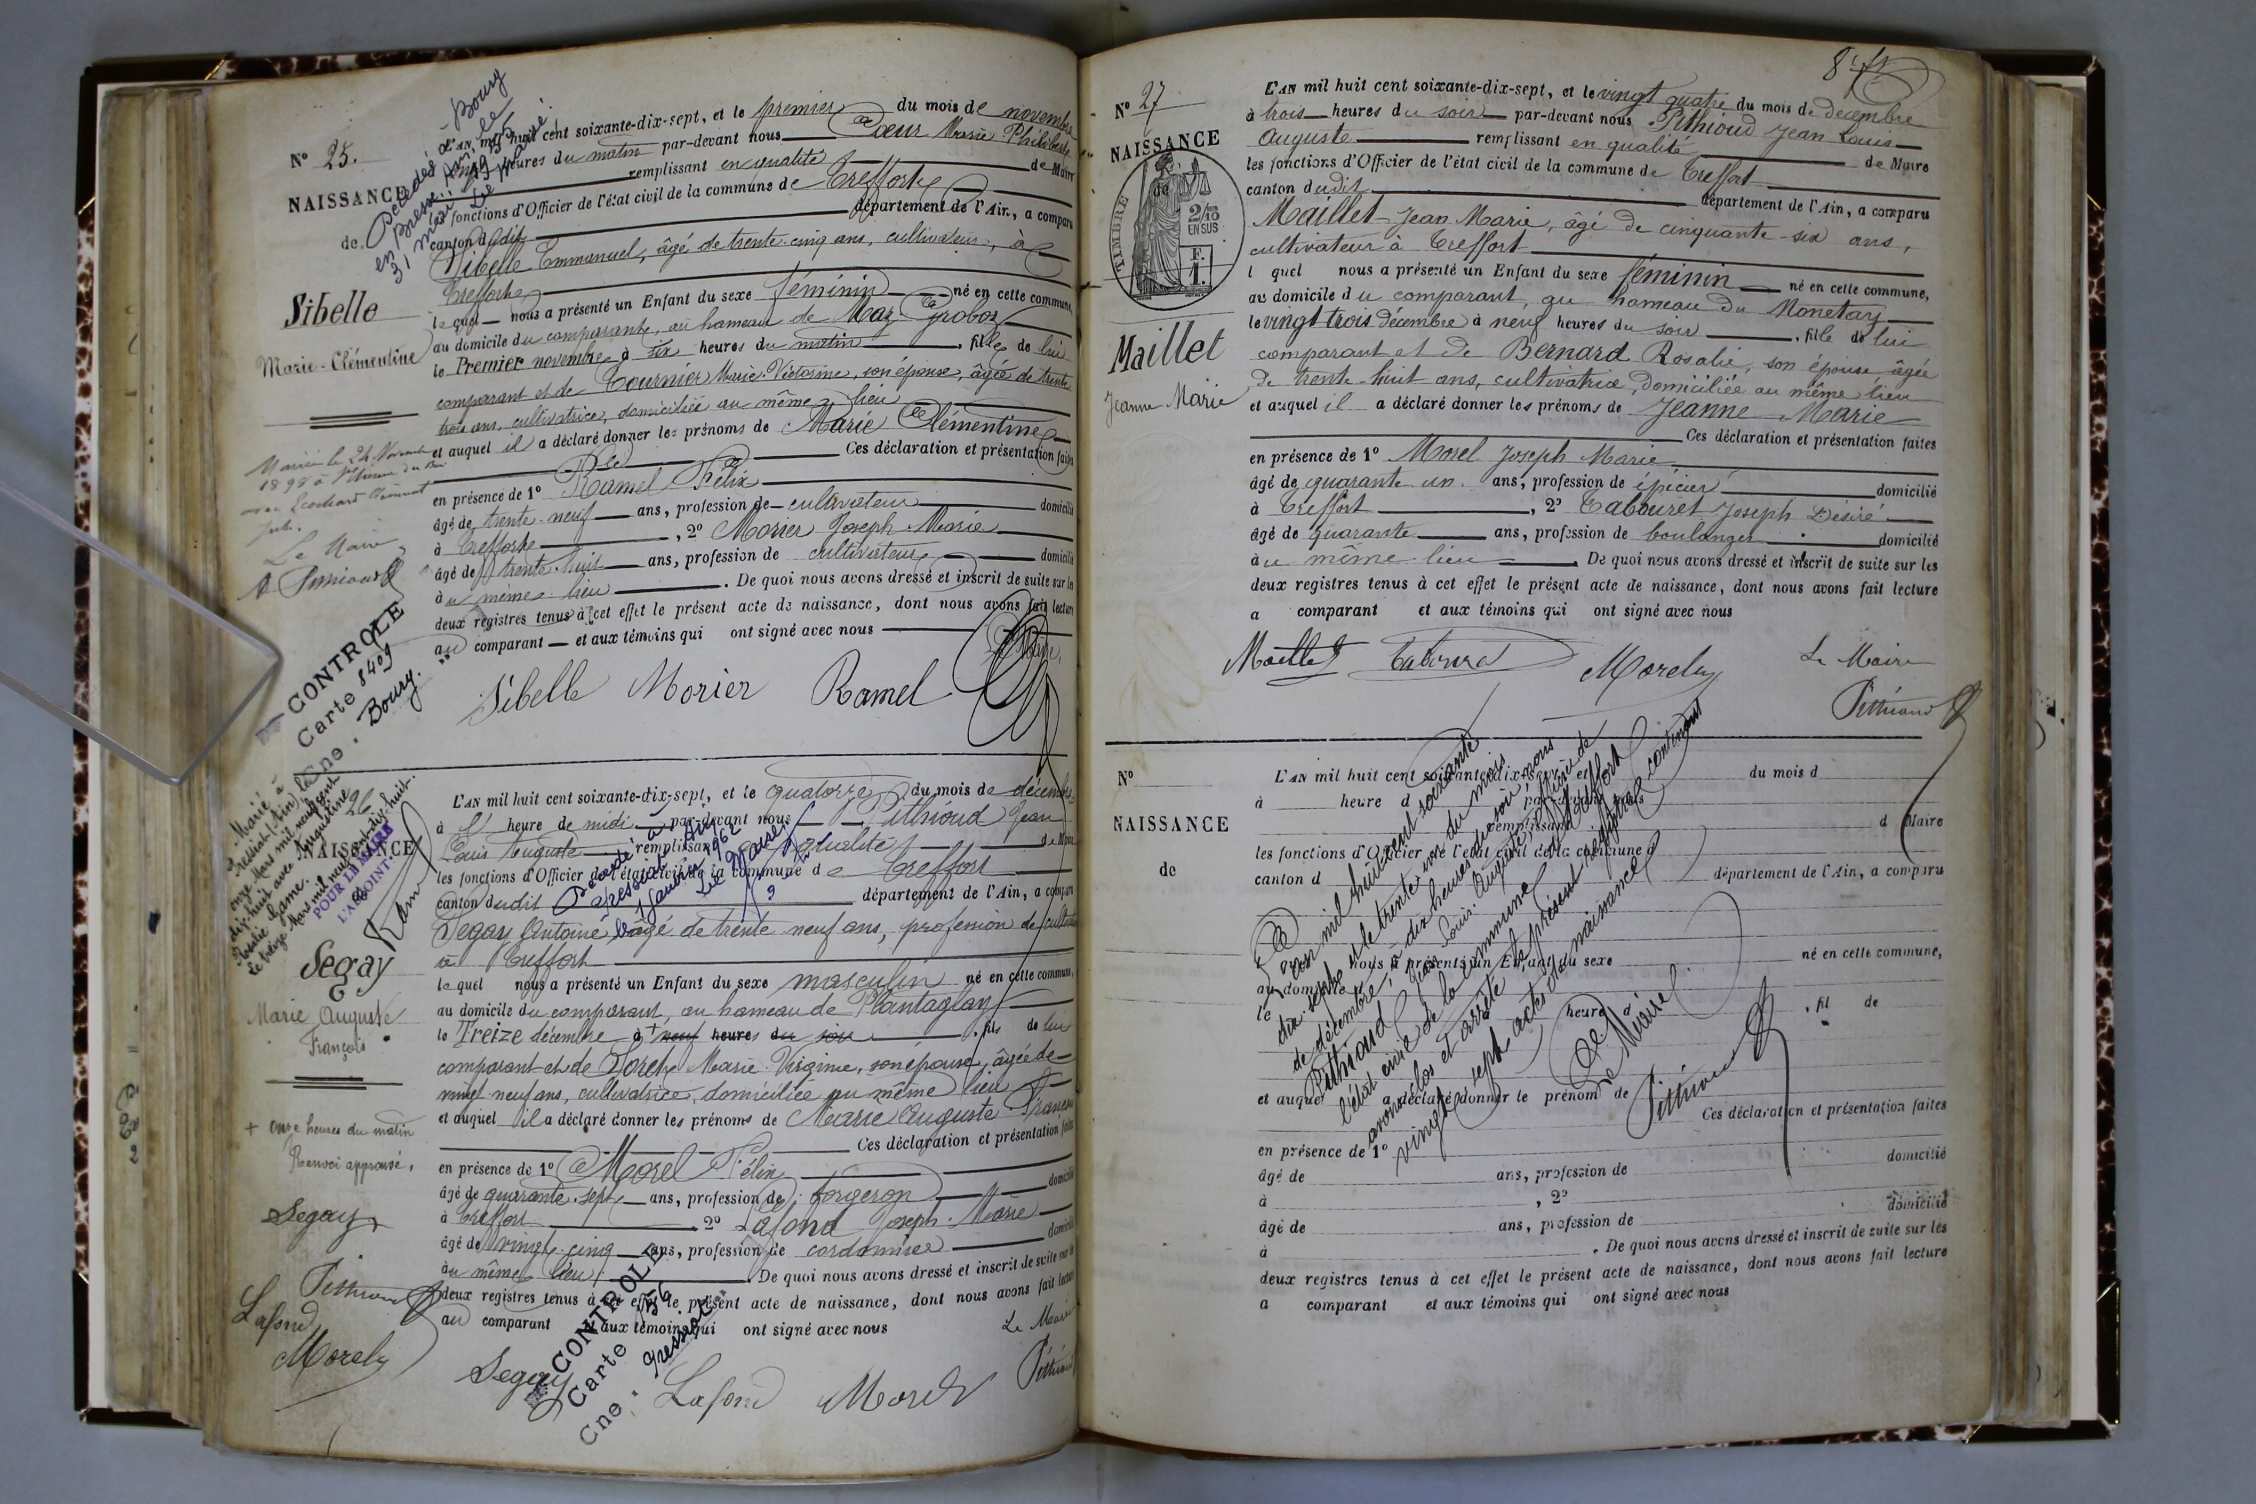 N° 25.
NAISSANCE
de
Sibelle
Marie-Clémentine
Décédée à Bourg
en Bresse, Ain, le
31 mai 1955
Le Maire
L'AN mil huit cent soixante-dix-sept, et le premier du mois de novembre
heures du matin par-devant nous Cœur Marie Philibert
remplissant en qualité de Maire
fonctions d'Officier de l'état civil de la commune de Treffort
canton dudit département de l'Ain, a comparu
Sibelle Emmanuel, âgé de trente-cinq ans, cultivateur, à
Treffort
lequel nous a présenté un Enfant du sexe féminin né en cette commune,
au domicile du comparant, au hameau de
le Premier novembre à six heures du matin, fille de lui
comparant et de Tournier Marie-Victorine, son épouse, âgée de trente
trois ans, cultivatrice, domiciliée au même lieu
et auquel il a déclaré donner les prénoms de Marie Clémentine
Ces déclaration et présentation faites
en présence de 1° Ramel Félix
âgé de trente-neuf ans, profession de cultivateur domicilié
à Treffort, 2° Morier Joseph-Marie
âgé de trente-huit ans, profession de cultivateur domicilié
au même lieu. De quoi nous avons dressé et inscrit de suite sur les
deux registres tenus à cet effet le présent acte de naissance, dont nous avons fait lecture
au comparant et aux témoins qui ont signé avec nous
Sibelle Morier Ramel
Mariée le 24 Novembre
1898 à
Le Maire
CONTROLE
Carte 8409
Cne. Bourg.
26
NAISSANCE
Segay
Marie Auguste
François
Marié à
Tressiat (Ain) le
onze Mars mil neuf cent
dix-huit avec Augustine
Rosalie
Le treize Mars mil neuf cent dix-huit.
POUR LE MAIRE
L'ADJOINT
L'AN mil huit cent soixante-dix-sept, et le quatorze du mois de décembre
à l' heure de midi par-devant nous Pithioud Jean
Louis Auguste remplissant en qualité de Maire
les fonctions d'Officier de l'état civil de la commune de Treffort
canton dudit département de l'Ain, a comparu
Décédé à
Tressiat Ain
le janvier 1962
Segay Antoine âgé de trente neuf ans, profession de
à Treffort
lequel nous a présenté un Enfant du sexe masculin né en cette commune,
au domicile du comparant, au hameau de Plantaglay
le Treize décembre à + neuf heures du soir, fils de lui
comparant et de Loret Marie Virginie, son épouse, âgée de
vingt neuf ans, cultivatrice, domiciliée au même lieu
et auquel il a déclaré donner les prénoms de Marie Auguste François
Ces déclaration et présentation faites
en présence de 1° Morel Félix
âgé de quarante-sept ans, profession de forgeron domicilié
à Treffort 2° Lafond Joseph-Marie
âgé de vingt-cinq ans, profession de cordonnier domicilié
au même lieu. De quoi nous avons dressé et inscrit de suite sur les
deux registres tenus à cet effet le présent acte de naissance, dont nous avons fait lecture
au comparant et aux témoins qui ont signé avec nous
Le Maire
Segay Lafond Morel Pithioud
+ onze heures du matin
Renvoi approuvé.
Segay
Pithioud
Lafond
Morel
CONTROLE
Carte 56
Cne. Tressiat
N° 27
NAISSANCE
de
TIMBRE
2/10
EN SUS
F.
1.
Maillet
Jeanne Marie
L'AN mil huit cent soixante-dix-sept, et le vingt quatre du mois de décembre
à trois heures du soir par-devant nous Pithioud Jean Louis
Auguste remplissant en qualité de Maire
les fonctions d'Officier de l'état civil de la commune de Treffort
canton dudit département de l'Ain, a comparu
Maillet Jean Marie, âgé de cinquante-six ans,
cultivateur à Treffort
l quel nous a présenté un Enfant du sexe féminin né en cette commune,
au domicile du comparant, au hameau du Monetay
le vingt trois décembre à neuf heures du soir, fille de lui
comparant et de Bernard Rosalie, son épouse âgée
de trente-huit ans, cultivatrice, domiciliée au même lieu
et auquel il a déclaré donner les prénoms de Jeanne Marie
Ces déclaration et présentation faites
en présence de 1° Morel Joseph Marie
âgé de quarante un ans, profession de épicier domicilié
à Treffort, 2° Tabouret Joseph Désiré
âgé de quarante ans, profession de boulanger domicilié
au même lieu. De quoi nous avons dressé et inscrit de suite sur les
deux registres tenus à cet effet le présent acte de naissance, dont nous avons fait lecture
a comparant et aux témoins qui ont signé avec nous
Maillet Tabouret Morel Le Maire
Pithioud
N°
NAISSANCE
de
L'AN mil huit cent soixante-dix-sept, et du mois d
à heure d par-devant nous
remplissant d Maire
les fonctions d'Officier de l'état civil de la commune d
canton d département de l'Ain, a comparu
nous a présenté un Enfant du sexe né en cette commune,
au domicile
le heure d, fil de
et auquel a déclaré donner le prénom de
Ces déclaration et présentation faites
en présence de 1°
âgé de ans, profession de domicilié
à, 2°
âgé de ans, profession de domicilié
à. De quoi nous avons dressé et inscrit de suite sur les
deux registres tenus à cet effet le présent acte de naissance, dont nous avons fait lecture
a comparant et aux témoins qui ont signé avec nous
L'an mil huit cent soixante
dix-sept et le trente un du mois
de décembre, à dix heures du soir, nous
Pithioud Jean Louis Auguste, officier de
l'état civil de la commune de Treffort
avons clos et arrêté le présent registre contenant
vingt sept actes de naissance
Le Maire
Pithioud